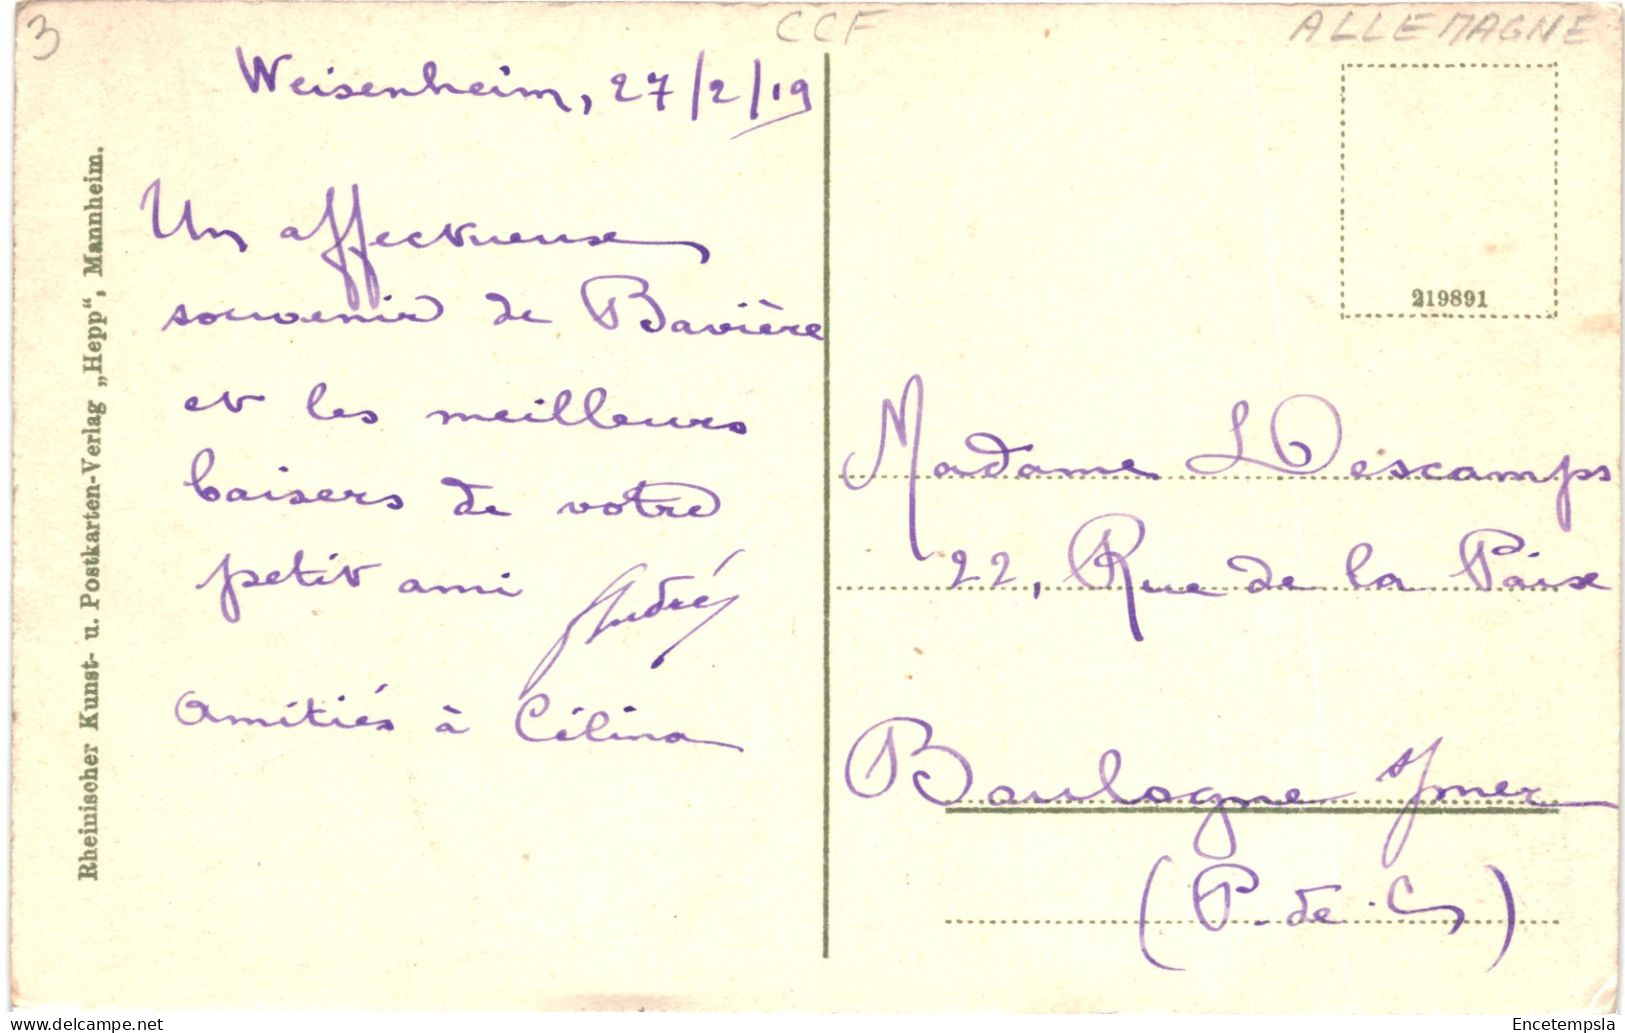 3
CCF
ALLEMAGNE
Weisenheim, 27/2/19
Un affectueux
souvenir de Bavière
et les meilleurs
baisers de votre
petit ami André
Amitiés à Célina
Rheinischer Kunst- u. Postkarten-Verlag „Hepp“, Mannheim.
219891
Madame L Descamps
22, Rue de la Paix
Boulogne s/mer
(P. de C)
delcampe.net
Encetempsla